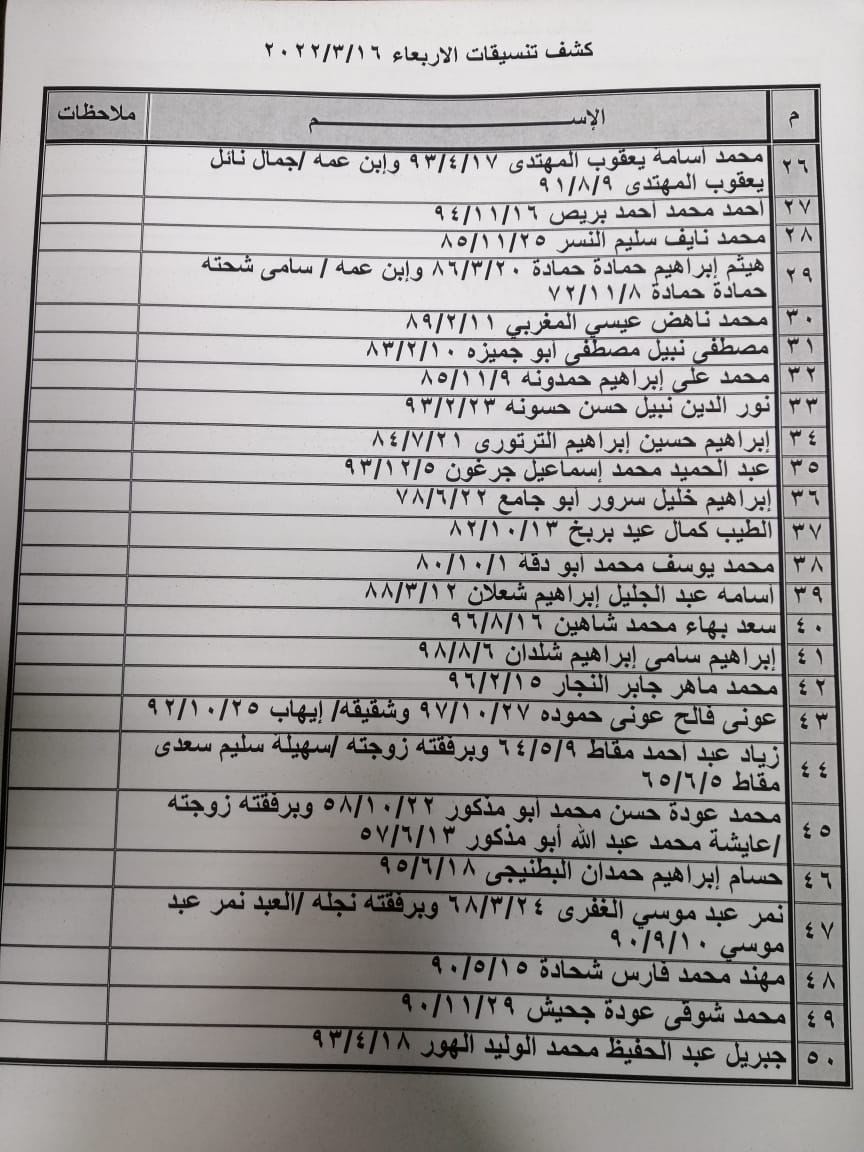 كشف تنسيقات الاربعاء ٢٠٢٢/٣/١٦
م الإســـــــــم ملاحظات
٢٦ محمد اسامة يعقوب المهتدى ٩٣/٤/١٧ وإبن عمه /جمال نائل
يعقوب المهتدى ٩١/٨/٩
٢٧ احمد محمد احمد بريص ٩٤/١١/١٦
٢٨ محمد نايف سليم النسر ٨٥/١١/٢٥
٢٩ هيثم إبراهيم حمادة حمادة ٨٦/٣/٢٠ وإبن عمه / سامى شحته
حمادة حمادة ٧٢/١١/٨
٣٠ محمد ناهض عيسي المغربي ٨٩/٢/١١
٣١ مصطفى نبيل مصطفى ابو جميزه ٨٣/٢/١٠
٣٢ محمد على إبراهيم حمدونه ٨٥/١١/٩
٣٣ نور الدين نبيل حسن حسونه ٩٣/٢/٢٣
٣٤ إبراهيم حسين إبراهيم الترتورى ٨٤/٧/٢١
٣٥ عبد الحميد محمد إسماعيل جرغون ٩٣/١٢/٥
٣٦ إبراهيم خليل سرور ابو جامع ٧٨/٦/٢٢
٣٧ الطيب كمال عيد بربخ ٨٢/١٠/١٣
٣٨ محمد يوسف محمد ابو دقة ٨٠/١٠/١
٣٩ اسامه عبد الجليل إبراهيم شعلان ٨٨/٣/١٢
٤٠ سعد بهاء محمد شاهين ٩٦/٨/١٦
٤١ إبراهيم سامى إبراهيم شلدان ٩٨/٨/٦
٤٢ محمد ماهر جابر النجار ٩٦/٢/١٥
٤٣ عونى فالح عونى حموده ٩٧/١٠/٢٧ وشقيقه/ إيهاب ٩٢/١٠/٢٥
٤٤ زياد عبد احمد مقاط ٦٤/٥/٩ وبرفقته زوجته /سهيلة سليم سعدى
مقاط ٦٥/٦/٥
٤٥ محمد عودة حسن محمد ابو مذكور ٥٨/١٠/٢٢ وبرفقته زوجته
/عايشة محمد عبد الله أبو مذكور ٥٧/٦/١٣
٤٦ حسام إبراهيم حمدان البطنيجى ٩٥/٦/١٨
٤٧ نمر عبد موسي الغفرى ٦٨/٣/٢٤ وبرفقته نجله /العبد نمر عبد
موسي ٩٠/٩/١٠
٤٨ مهند محمد فارس شحادة ٩٠/٥/١٥
٤٩ محمد شوقى عودة جحيش ٩٠/١١/٢٩
٥٠ جبريل عبد الحفيظ محمد الوليد الهور ٩٣/٤/١٨